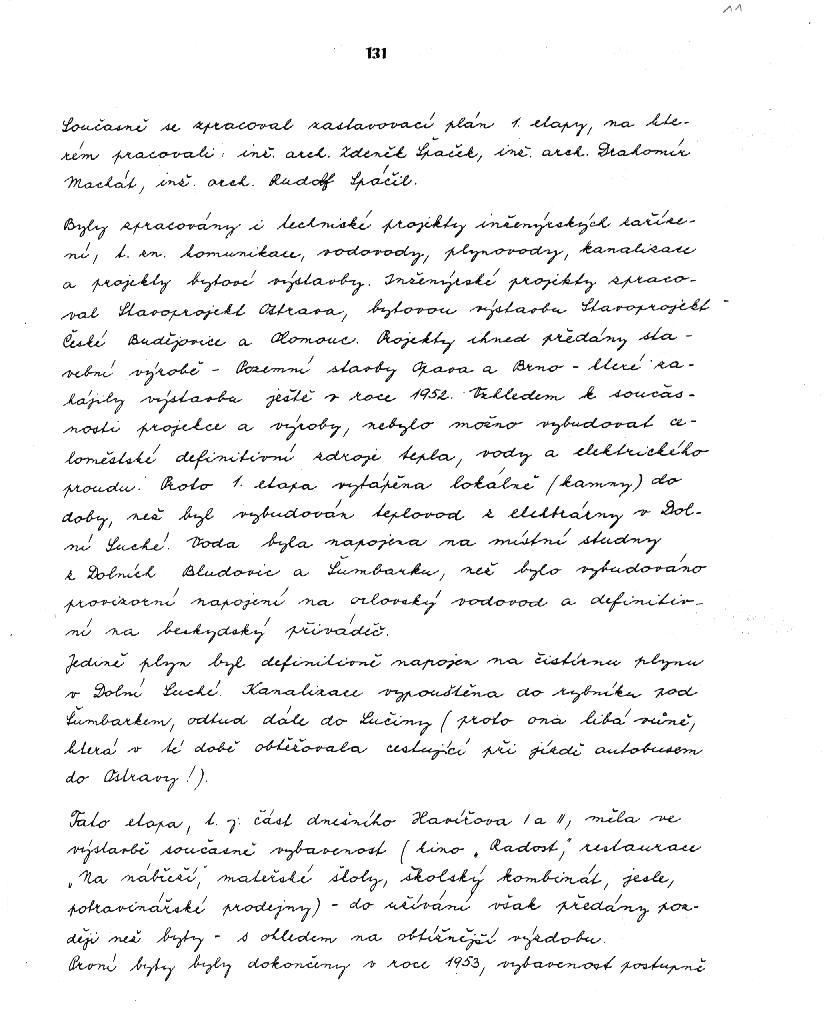 11
131
Současně se zpracoval zastavovací plán 1. etapy, na kte-
rém pracovali: inž. arch. Zdeněk Špaček, inž. arch. Drahomír
Machát, inž. arch. Rudolf Spáčil.
Byly zpracovány i technické projekty inženýrských zaříze-
ní, t. zn. komunikace, vodovody, plynovody, kanalizace
a projekty bytové výstavby. Inženýrské projekty zpraco-
val Stavoprojekt Ostrava, bytovou výstavbu Stavoprojekt
České Budějovice a Olomouc. Projekty ihned předány sta-
vební výrobě - Pozemní stavby Opava a Brno - které za-
hájily výstavbu ještě v roce 1952. Vzhledem k součas-
nosti projekce a výroby, nebylo možno vybudovat ce-
loměstské definitivní zdroje tepla, vody a elektrického
proudu. Proto 1. etapa vytápěna lokálně (kamny) do
doby, než byl vybudován teplovod z elektrárny v Dol-
ní Suché. Voda byla napojena na místní studny
z Dolních Bludovic a Šumbarku, než bylo vybudováno
provizorní napojení na orlovský vodovod a definitiv-
ní na beskydský přivaděč.
Jedině plyn byl definitivně napojen na čistírnu plynu
v Dolní Suché. Kanalizace vypouštěna do rybníku pod
Šumbarkem, odtud dále do Lučiny (proto ona libá vůně,
která v té době obtěžovala cestující při jízdě autobusem
do Ostravy!).
Tato etapa, t. j. část dnešního Havířova I a II, měla ve
výstavbě současně vybavenost (kino „Radost", restaurace
„Na nábřeží", mateřské školy, školský kombinát, jesle,
potravinářské prodejny) - do užívání však předány poz-
ději než byty - s ohledem na obtížnější výzdobu.
První byty byly dokončeny v roce 1953, vybavenost postupně